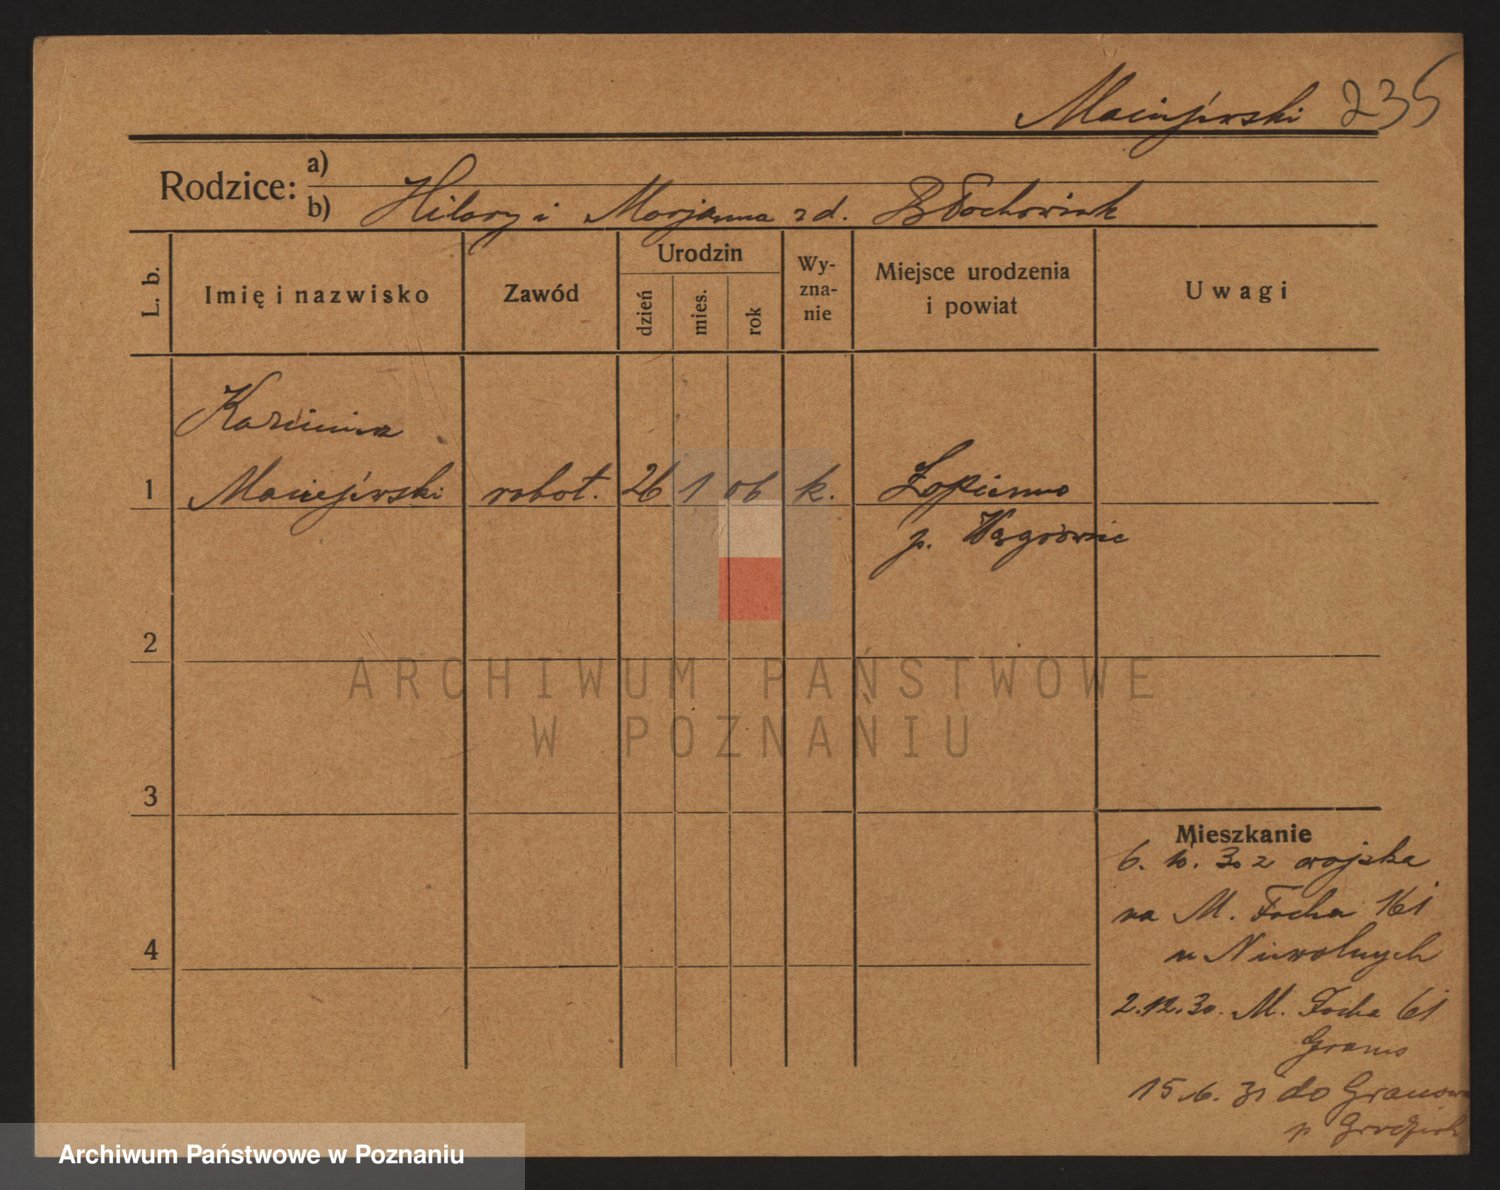 Maciejewski 235
Rodzice: a)
b) Hilary i Marjanna zd. Błochowiak
L. b.
Imię i nazwisko
Zawód
Urodzin
dzień
mies.
rok
Wy-
zna-
nie
Miejsce urodzenia
i powiat
Uwagi
Kazimierz
1 Maciejewski robot. 26 1 06 k. Łopienno
p. Wągrówiec
2
ARCHIWUM PAŃSTWOWE
W POZNANIU
3
4
Mieszkanie
6. 10. 30 z wojska
na M. Focha 161
u Niewolnych
2.12.30. M. Focha 61
15.6.31 do Granowa
p Grodzisk
Archiwum Państwowe w Poznaniu